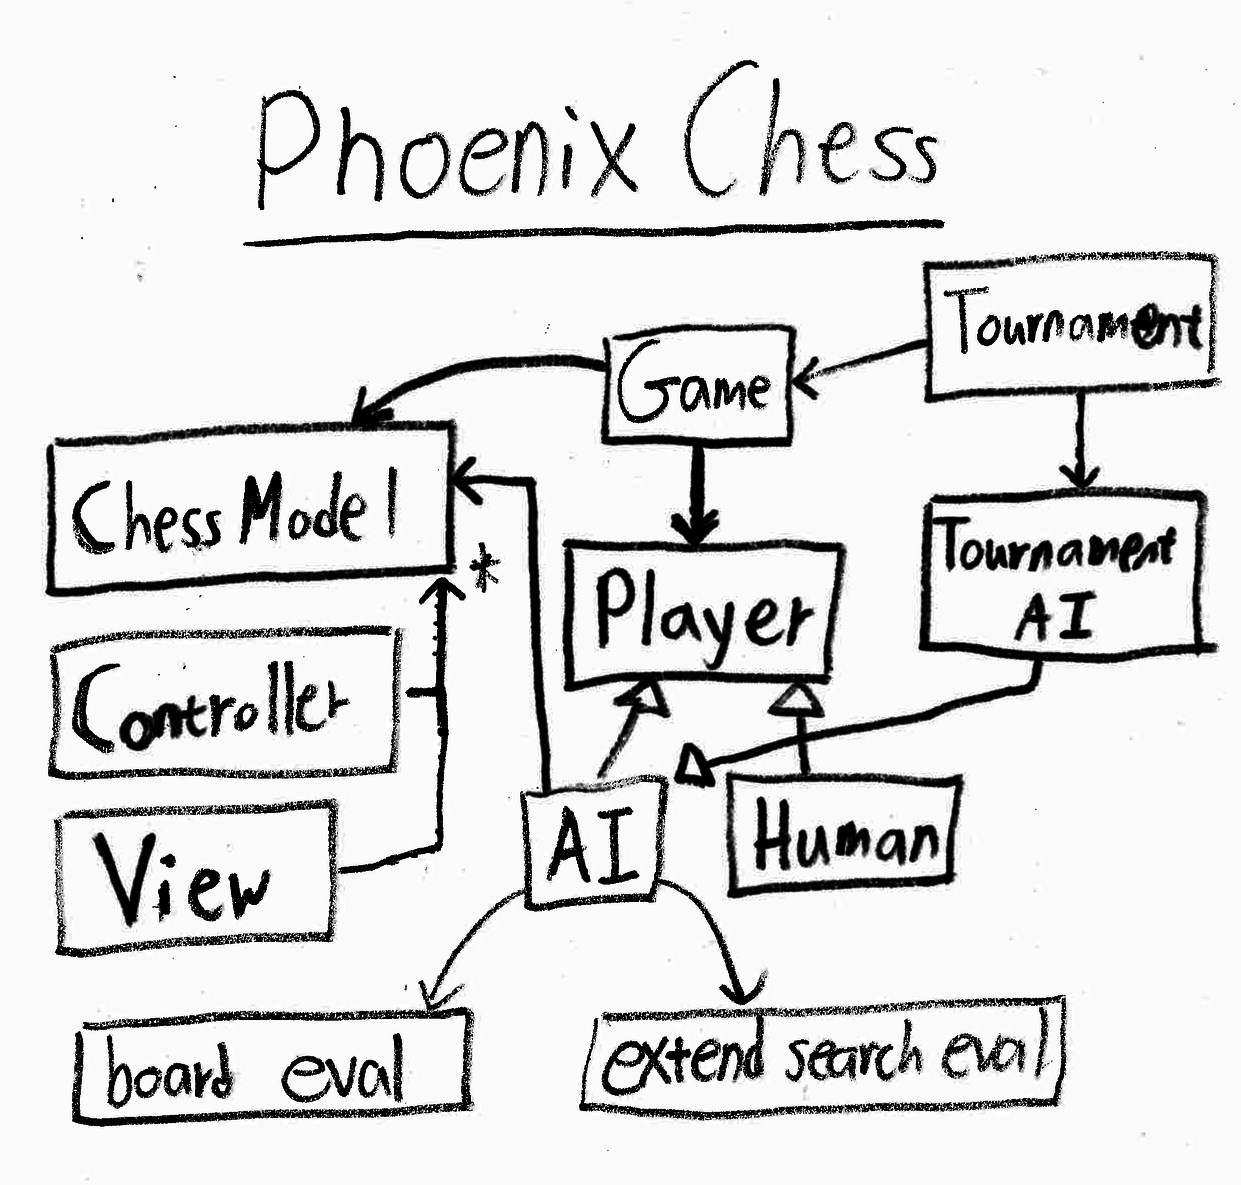 Phoenix Chess
Tournament
Game
Chess Model
*
Tournament
AI
Player
Controller
View
AI
Human
board eval
extend search eval